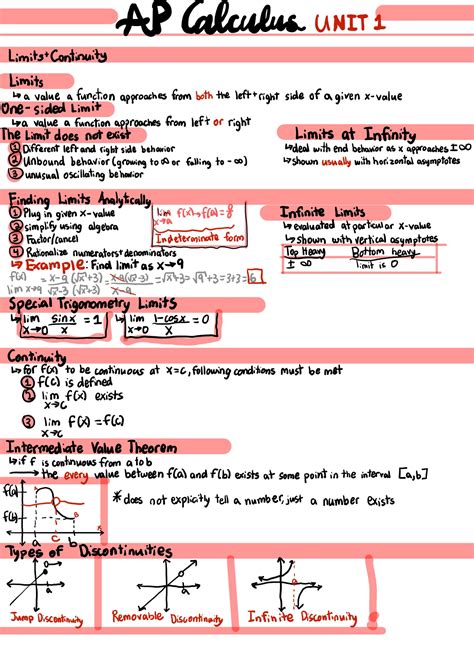 AP Calculus UNIT 1
Limits + Continuity
Limits
↳ a value a function approaches from both the left + right side of a given x-value
One-sided Limit
↳ a value a function approaches from left or right
The Limit does not exist
① Different left and right side behavior
② Unbound behavior (growing to ∞ or falling to -∞)
③ unusual oscillating behavior
Limits at Infinity
↳ deal with end behavior as x approaches ±∞
↳ shown usually with horizontal asymptotes
Finding Limits Analytically
① Plug in given x-value
② simplify using algebra
③ Factor/cancel
④ Rationalize numerators + denominators
lim x→a f(x) → f(a) = 0/0
Indeterminate form
Infinite Limits
↳ evaluated at particular x-value
↳ shown with vertical asymptotes
Top Heavy Bottom heavy
± ∞ limit is 0
↳ Example: Find limit as x→9
f(x) = x-9 (√x+3) = x-9(√x+3) = √x+3 = √9+3 = 3+3 = 6
lim x→9 √x-3 (√x+3) x-9
Special Trigonometry Limits
↳ lim x→0 sinx/x = 1
↳ lim x→0 1-cosx/x = 0
Continuity
↳ for f(x) to be continuous at x=c, following conditions must be met
① f(c) is defined
② lim x→c f(x) exists
③ lim x→c f(x) = f(c)
Intermediate Value Theorem
↳ if f is continuous from a to b
→ the every value between f(a) and f(b) exists at some point in the interval [a,b]
f(a)
f(b)
B
a c b
x
* does not explicity tell a number, just a number exists
Types of Discontinuities
Jump Discontinuity
Removable Discontinuity
Infinite Discontinuity